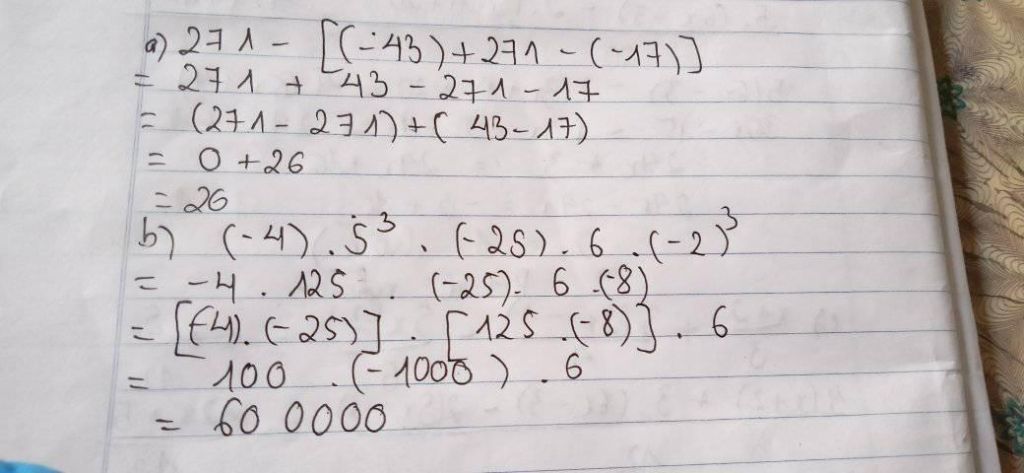 a) 271 - [(-43) + 271 - (-17)]
= 271 + 43 - 271 - 17
= (271 - 271) + ( 43 - 17)
= 0 + 26
= 26
b) (-4) . 5³ . (-25) . 6 . (-2)³
= -4 . 125 . (-25). 6 .(-8)
= [(-4). (-25)] . [125 .(-8)] . 6
= 100 .(-1000) . 6
= 60 0000